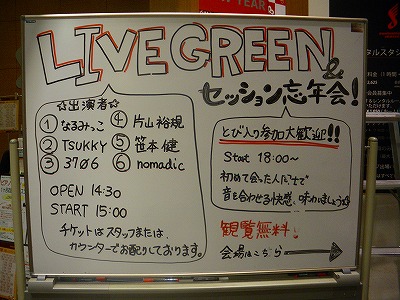 YEAR
LIVE GREEN
&
セッション忘年会!
☆出演者☆
①なるみっこ
②TSUKKY
③3706
④片山裕規
⑤笹本 健
⑥nomadic
OPEN 14:30
START 15:00
チケットはスタッフまたは、
カウンターでお配りしております。
とび入り参加大歓迎!!
Start 18:00~
初めて会った人だちで
音を合わせる快感、味わいましょう
観覧無料!
会場はこちら →